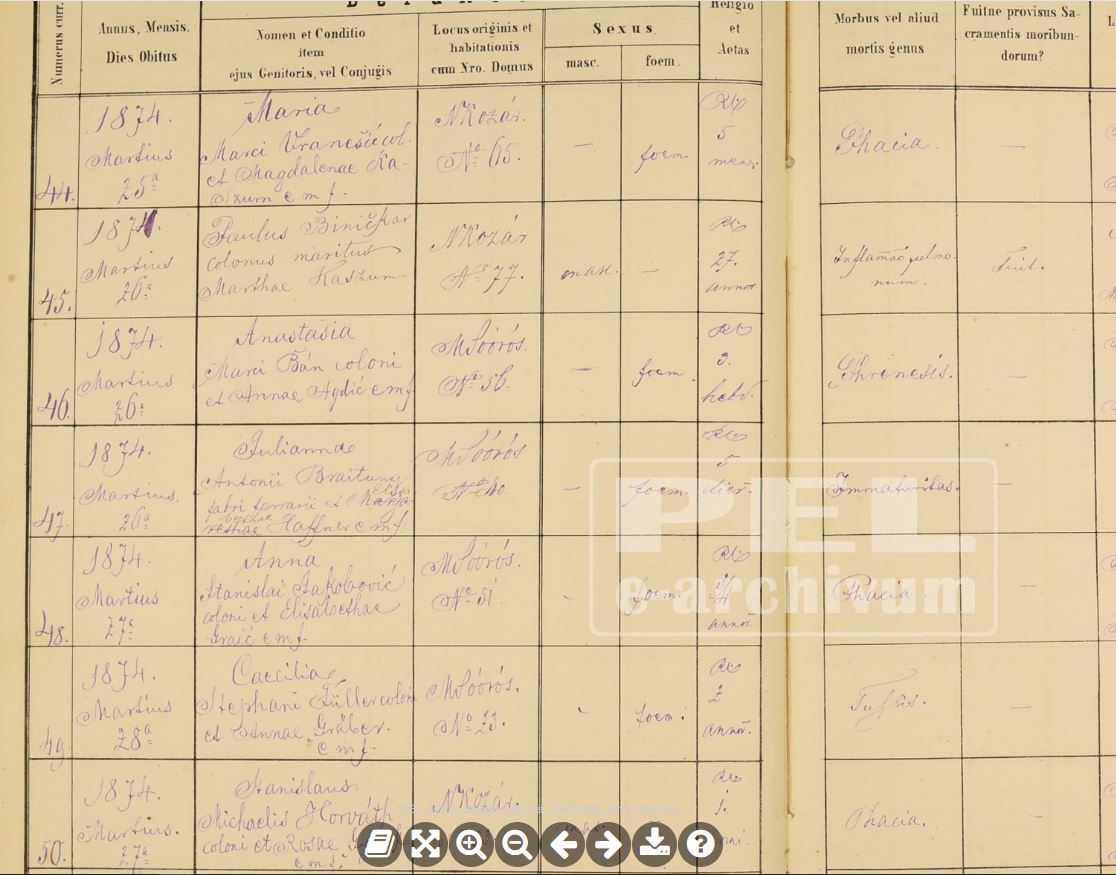 Numerus curr.
Annus, Mensis,
Dies Obitus
Nomen et Conditio
item
ejus Genitoris, vel Conjugis
Locus originis et
habitationis
cum Nro. Domus
Sexus
masc.
foem.
Religio
et
Aetas
Morbus vel aliud
mortis genus
Fuitne provisus Sa-
cramentis moribun-
dorum?
44.
1874.
Martius
25ª
Maria
Marci Vranešić col.
et Magdalenae Ka-
szum c m f.
NKozár.
Nº 65.
—
foem.
5
mens.
Phacia.
—
45.
1874.
Martius
26ª
Paulus Biničkar
colonus maritus
Marthae Kaszum.
NKozár
Nº 77.
masc.
—
27.
annor
Inflamaõ pulmo-
num.
Fuit.
46.
1874.
Martius
26ª
Anastasia
Marci Bán coloni
et Annae c m f
MSóórós.
Nº 56.
—
foem.
3.
hebd.
Phrenesis.
—
47.
1874.
Martius.
26ª
Julianna
Antonii Braitung
fabri ferrarii et
Haffner c m f
MSóórós
Nº 40.
—
foem.
5
dier.
Immaturitas.
—
48.
1874.
Martius
27ª
Anna
Stanislai Jakobović
coloni et Elisabethae
Graić c m f.
MSóórós.
Nº 51
foem.
annor.
Phacia.
—
49.
1874.
Martius
28ª
Caecilia
Stephani Füller coloni
et Annae Gräber.
c m f.
MSóórós.
Nº 23.
foem.
2
annor.
Tussis.
—
50.
1874.
Martius.
27ª
Stanislaus
Michaelis Horváth
coloni et Rosae
c m f.
NKozár.
masc.
1.
Phacia.
—
PEL
e-archivum
?